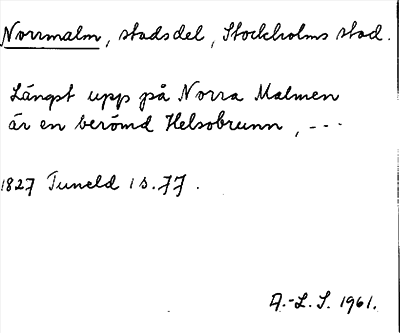 Norrmalm, stadsdel, Stockholms stad.
Längst upp på Norra Malmen
är en berömd Helsobrunn, ---
1827 Tuneld 1 s. 77.
A.-L. S. 1961.